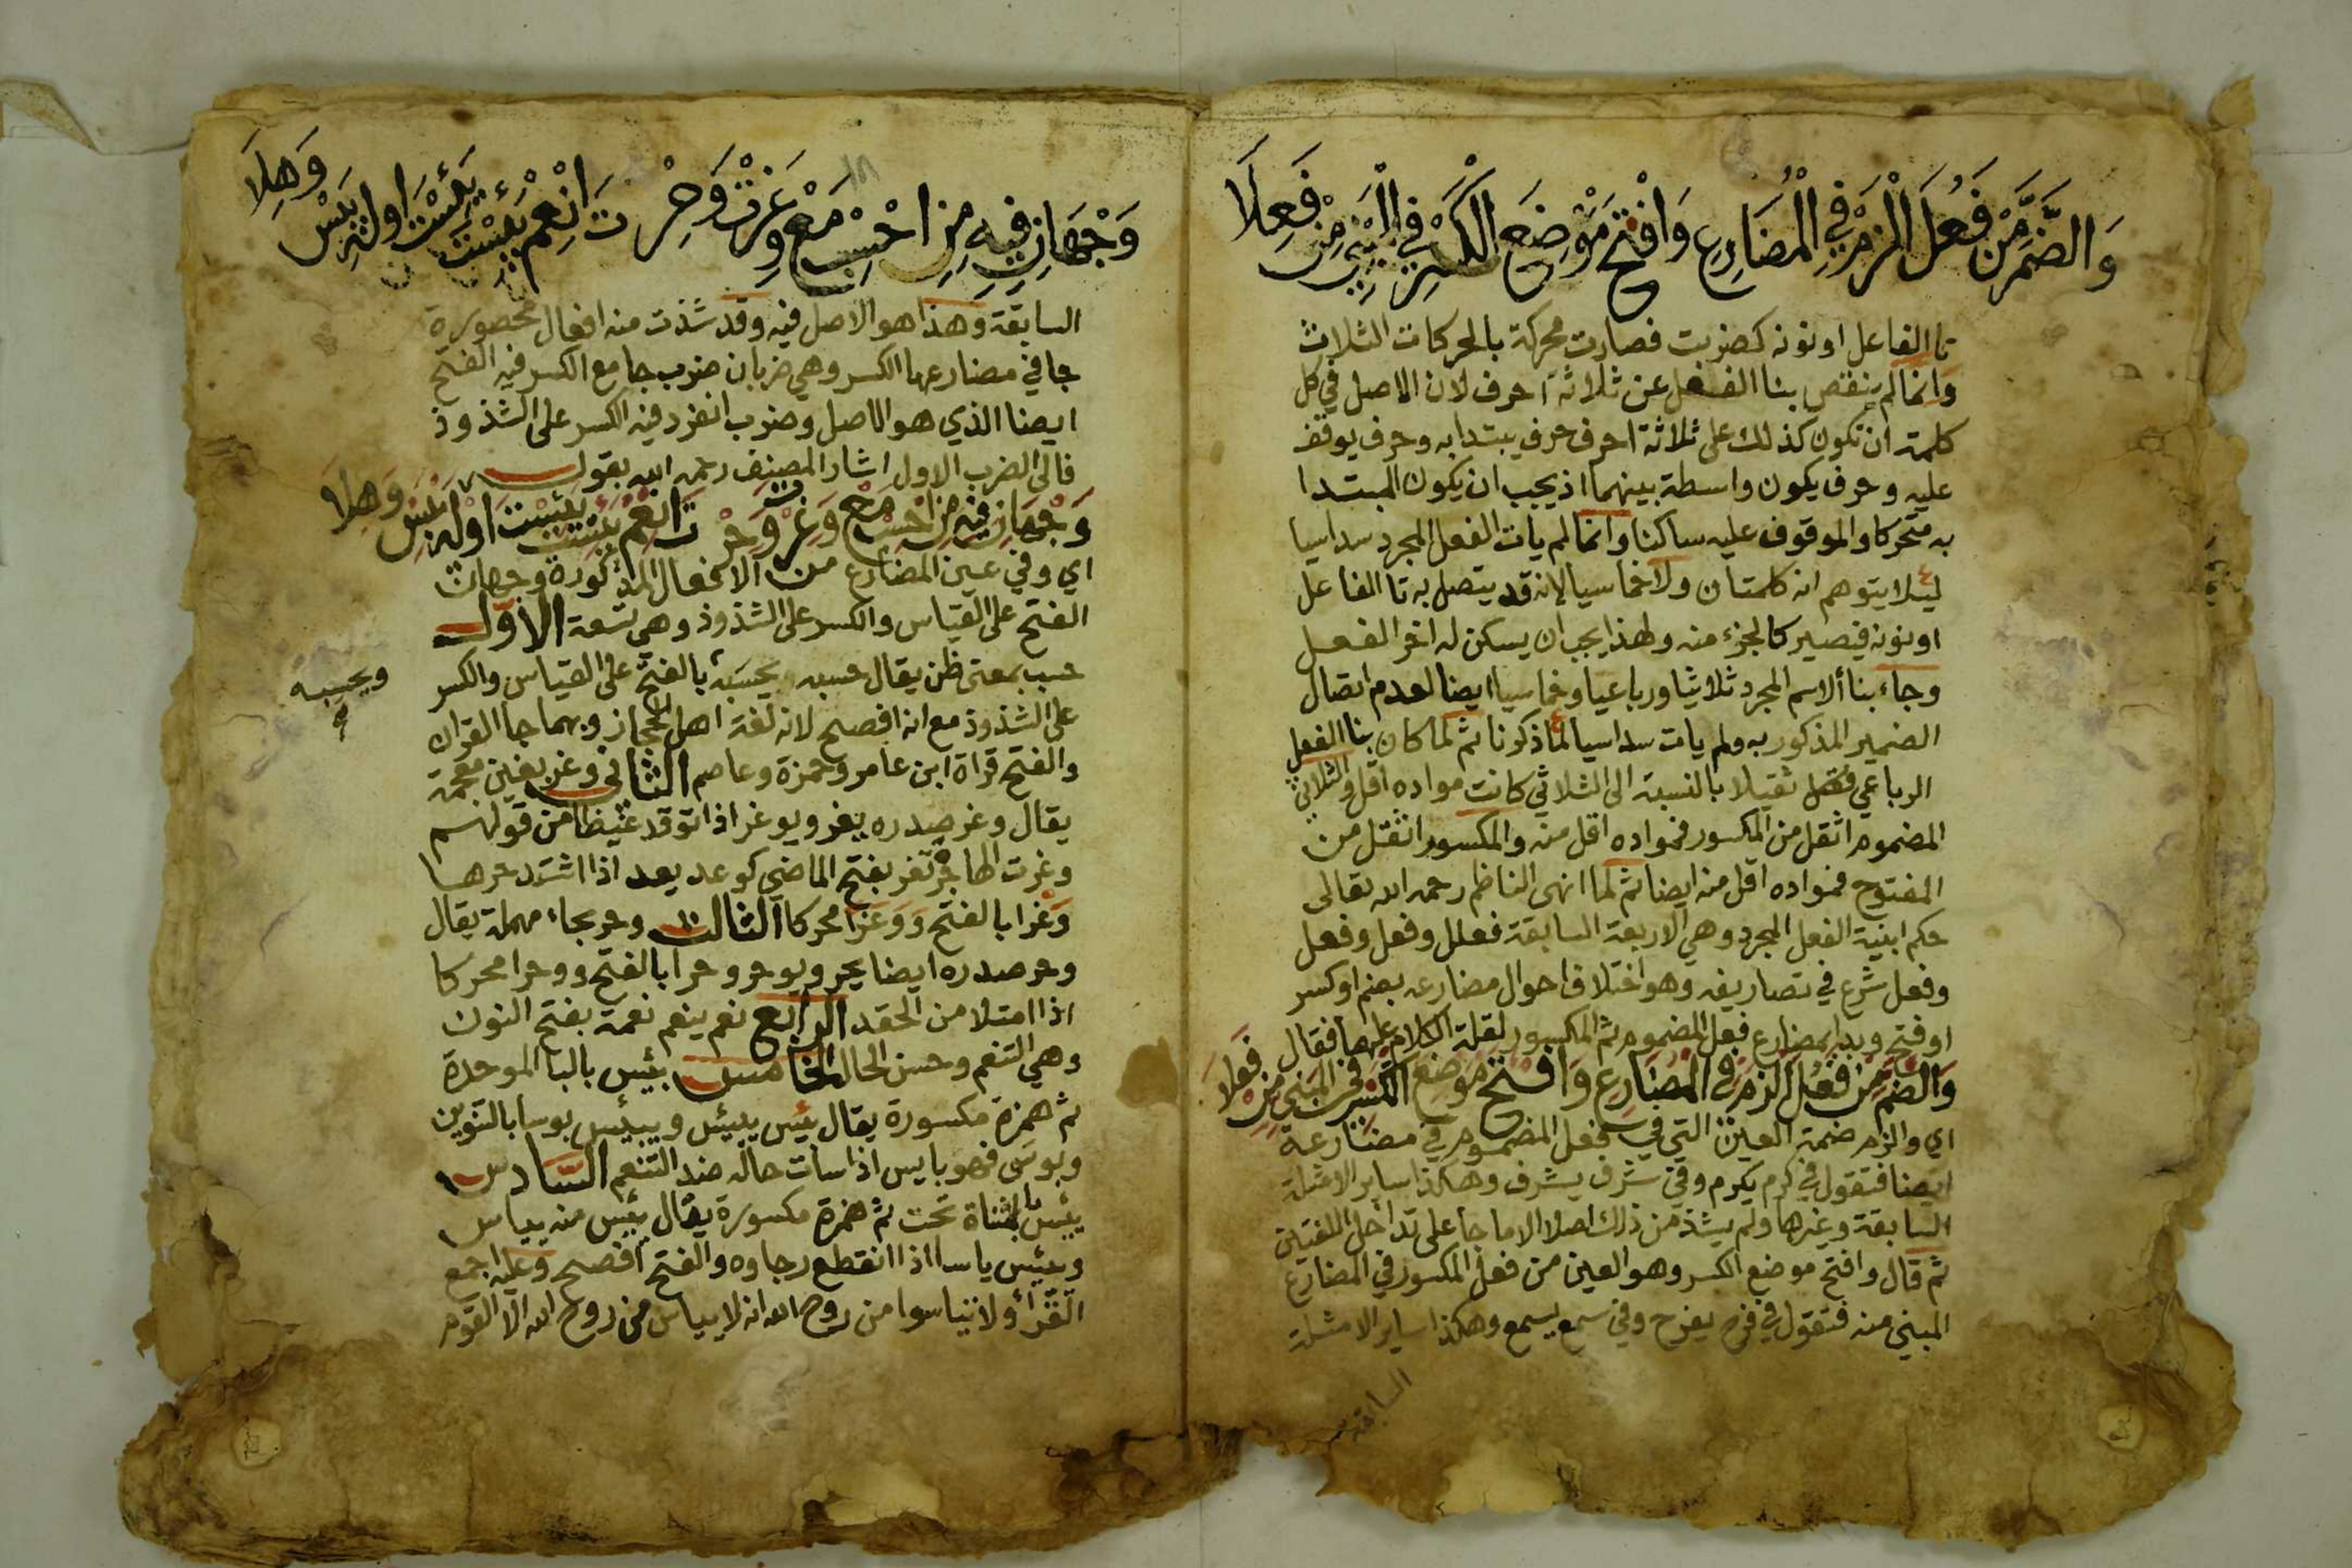 وَالضَّمَّ مِنْ فَعُلَ الْزَمْ فِي الْمُضَارِعِ وَافْتَحْ مَوْضِعَ الْكَسْرِ فِي الْمَبْنِيِّ مِنْ فَعِلَا
تا الفاعل او نونه كضربت فصارت محركة بالحركات الثلاث
وانما لم ينقص بنا الفعل عن ثلاثة احرف لان الاصل في كل
كلمة ان تكون كذلك على ثلاثة احرف حرف يبتدا به وحرف يوقف
عليه وحرف يكون واسطة بينهما اذ يجب ان يكون المبتدا
به متحركا والموقوف عليه ساكنا وانما لم يات الفعل المجرد سداسيا
ليئلا يتوهم انه كلمتان ولا خماسيا لانه قد يتصل به تا الفاعل
او نونه فيصير كالجزء منه ولهذا يجب ان يسكن له اخر الفعل
وجاء بنا ألاسم المجرد ثلاثيا ورباعيا وخماسيا ايضا لعدم اتصال
الضمير المذكور به ولم يات سداسيا لما ذكرنا ثم لما كان بنا الفعل
الرباعي ثقيلا بالنسبة الى الثلاثي كانت مواده اقل والثلاثي
المضموم اثقل من المكسور فمواده اقل منه والمكسور اثقل من
المفتوح فمواده اقل منه ايضا ثم لما انهى الناظم رحمه الله تعالى
حكم ابنية الفعل المجرد وهي الاربعة السابقة فعلل وفعل وفعل
وفعل شرع في تصاريفه وهو اختلاف احوال مضارعه بضم او كسر
او فتح وبدا بمضارع فعل المضموم ثم المكسور لقلة الكلام عليهما فقال
وَالضَّمَّ مِنْ فَعُلَ الْزَمْ فِي الْمُضَارِعِ وَافْتَحْ مَوْضِعَ الْكَسْرِ فِي الْمَبْنِيِّ مِنْ فَعِلَا
اي والزم ضمة العين التي في فعل المضموم في مضارعه
ايضا فتقول في كرم يكرم وفي شرف يشرف وهكذا ساير الامثلة
السابقة وغيرها ولم يشذ من ذلك اصلا الا ما جا على تداخل اللغتين
ثم قال وافتح موضع الكسر وهو العين من فعل المكسور في المضارع
المبني منه فتقول في فرح يفرح وفي سمع يسمع وهكذا ساير الامثلة
السابقة
وَجْهَانِ فِيهِ مِنِ احْسِبْ مَعْ وَغِرْتَ وَحِرْتَ انْعِمْ بَئِسْتَ يَئِسْتَ اولَهْ يَبِسْ وَهِلَا
السابقة وهذا هو الاصل فيه وقد شذت منه افعال محصورة
جا في مضارعها الكسر وهي ضربان ضرب جا مع الكسر فيه الفتح
ايضا الذي هو الاصل وضرب انفرد فيه الكسر على الشذوذ
فالى الضرب الاول اشار المصنف رحمه الله بقوله
وَجْهَانِ فِيهِ مِنِ احْسِبْ مَعْ وَغِرْتَ وَحِرْتَ انْعِمْ بَئِسْتَ يَئِسْتَ اوله يَبِسْ وَهِلَا
اي وفي عين المضارع من الافعال المذكورة وجهان
الفتح على القياس والكسر على الشذوذ وهي تسعة الاول
حسب بمعنى ظن يقال حسبه يحسَبه بالفتح على القياس والكسر
ويحسِبه
على الشذوذ مع انه افصح لانه لغة اهل الحجاز وبهما جا القران
والفتح قراة ابن عامر وحمزة وعاصم الثاني وغر بغين معجمة
يقال وغر صدره يغر ويوغر اذا توقد غيظا من قولهم
وغرت الهاجرة تغر بفتح الماضي كوعد يعد اذا اشتد حرها
وغرا بالفتح ووغرا محركا الثالث وحر بحاء مهملة يقال
وحر صدره ايضا يحر ويوحر وحرا بالفتح ووحرا محركا
اذا امتلا من الحقد الرابع نعم ينعم نعمة بفتح النون
وهي التنعم وحسن الحال الخامس بئس بالبا الموحدة
ثم همزة مكسورة يقال بئس يبئس ويبيئس بوسا بالتنوين
وبوسى فهو بايس اذا سات حاله ضد التنعم السادس
يئس بالمثناة تحت ثم همزة مكسورة يقال يئس منه يياس
ويئس ياسا اذا انقطع رجاوه والفتح افصح وعليه اجمع
القرأ ولا تياسوا من روح الله انه لا يياس من روح الله الا القوم